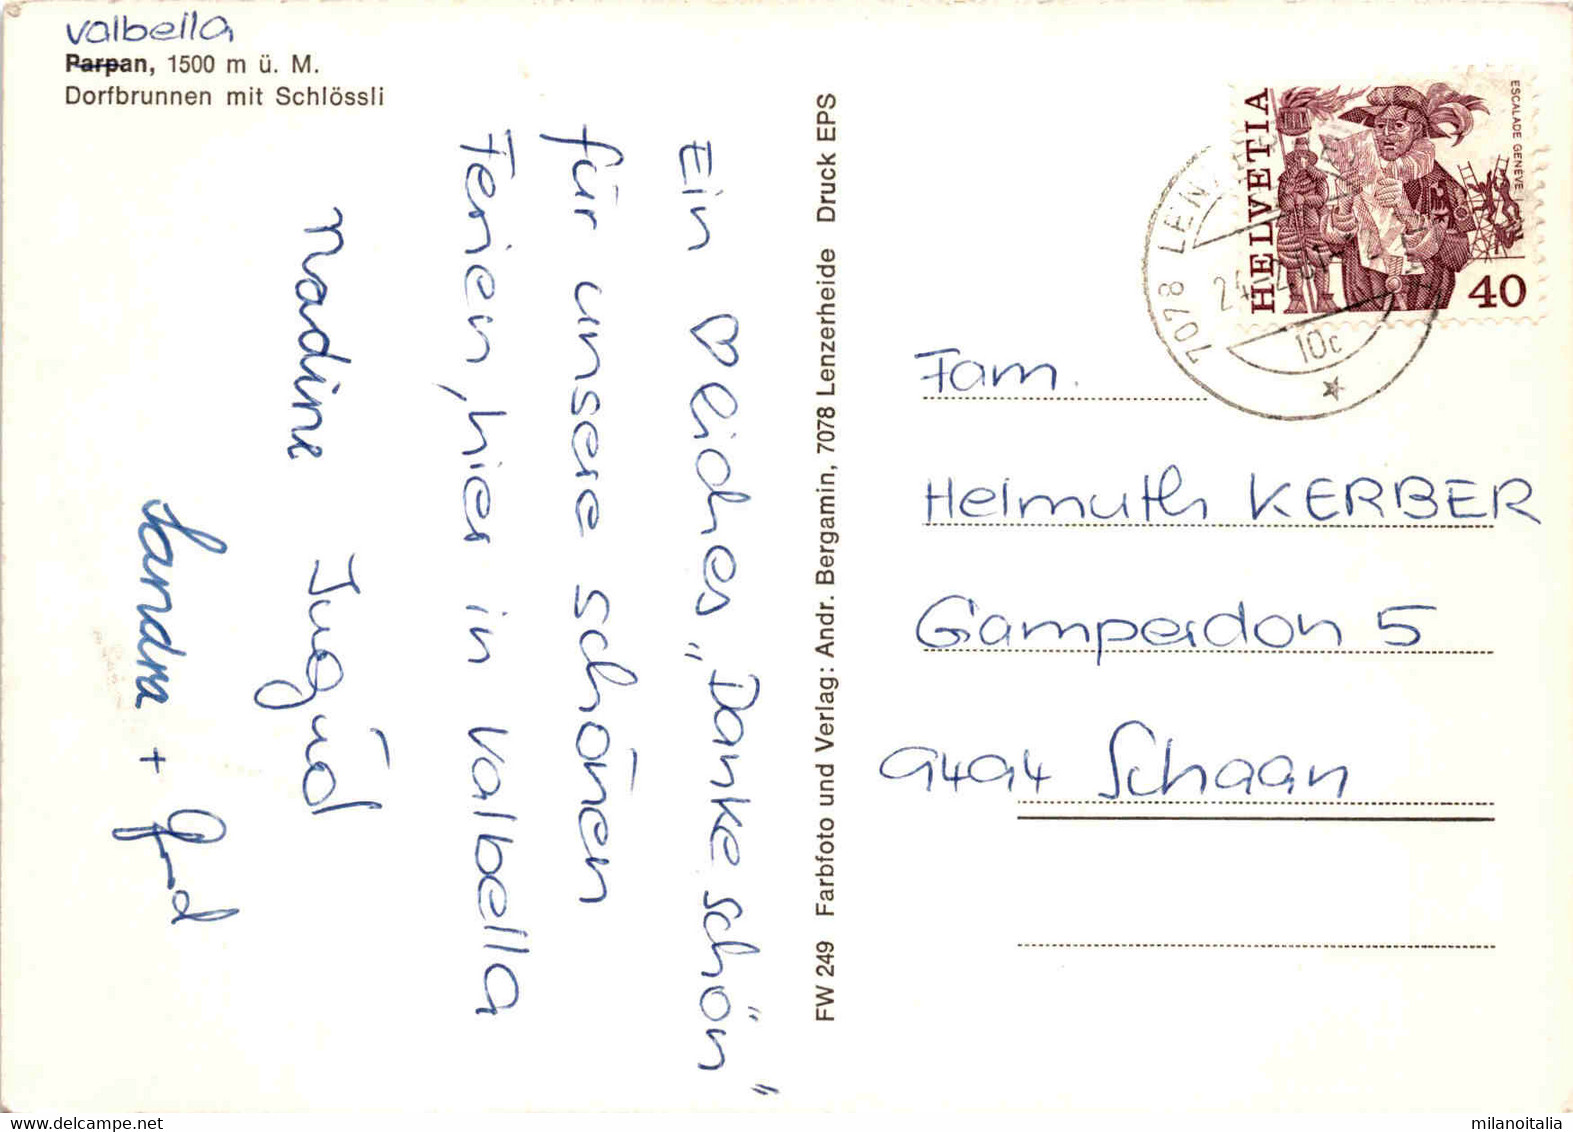 Valbella
Parpan, 1500 m ü. M.
Dorfbrunnen mit Schlössli
Ein ♡liches „Danke schön"
für unsere schönen
Ferien, hier in Valbella
Nadine
Sandra +
FW 249 Farbfoto und Verlag: Andr. Bergamin, 7078 Lenzerheide Druck EPS
HELVETIA
ESCALADE GENÈVE
40
7078 LENZ
10c
Fam.
Helmuth KERBER
Gamperdon 5
9494 Schaan
milanoitalia